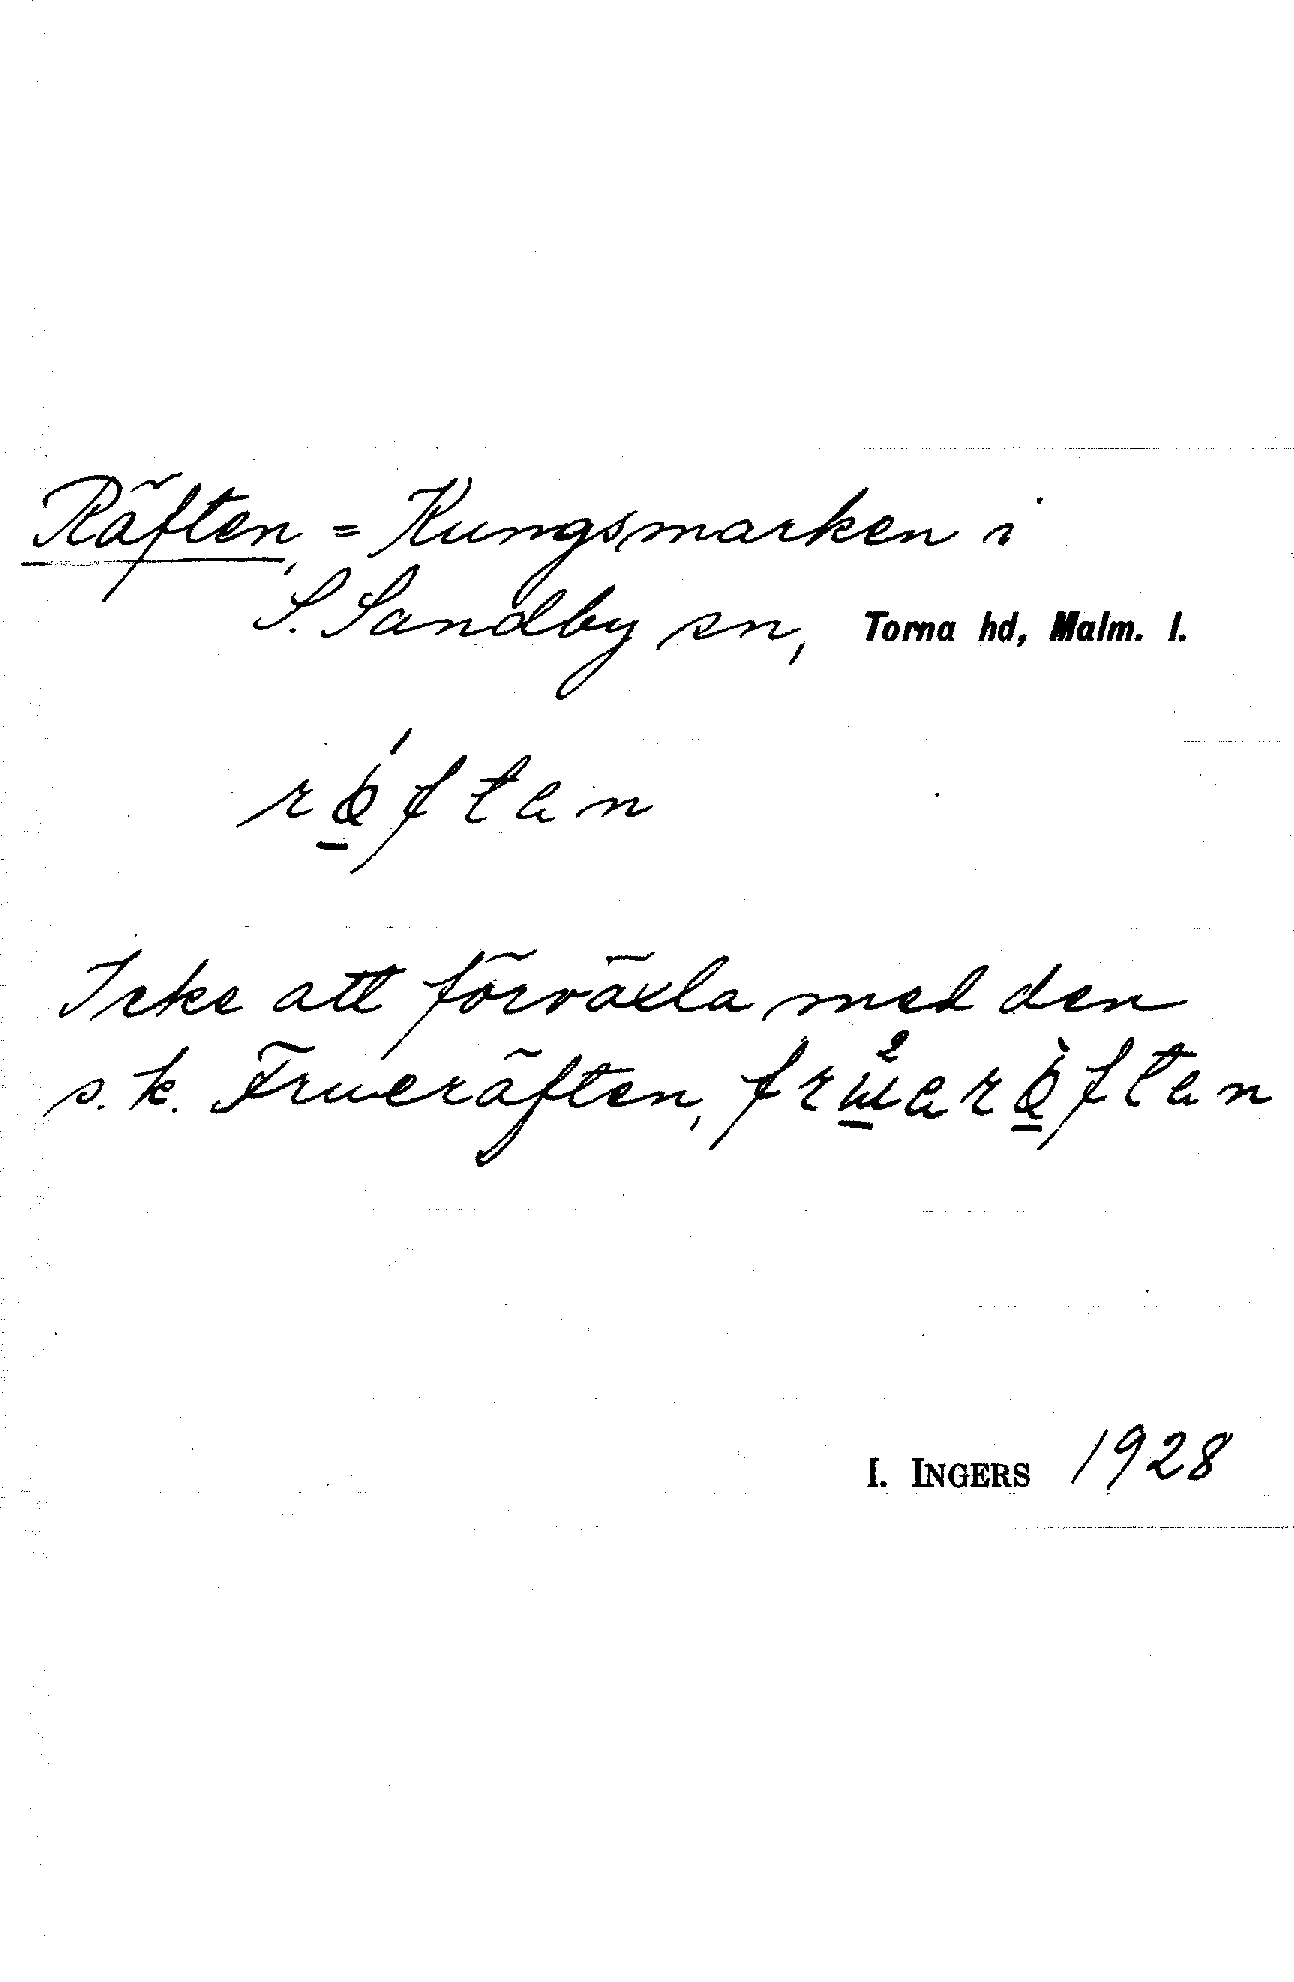 Räften, = Kungsmarken i
S. Sandby sn, Torna hd, Malm. l.
Icke att förväxla med den
s. k. Frueräften,
I. INGERS 1928